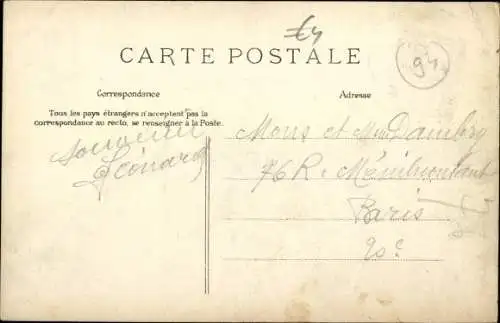 CARTE POSTALE
94
Correspondance
Adresse
Tous les pays étrangers n'acceptent pas la
correspondance au recto, se renseigner à la Poste.
souvenir
Léonard
Mons et Mme
76 R. Ménilmontant
Paris
20e